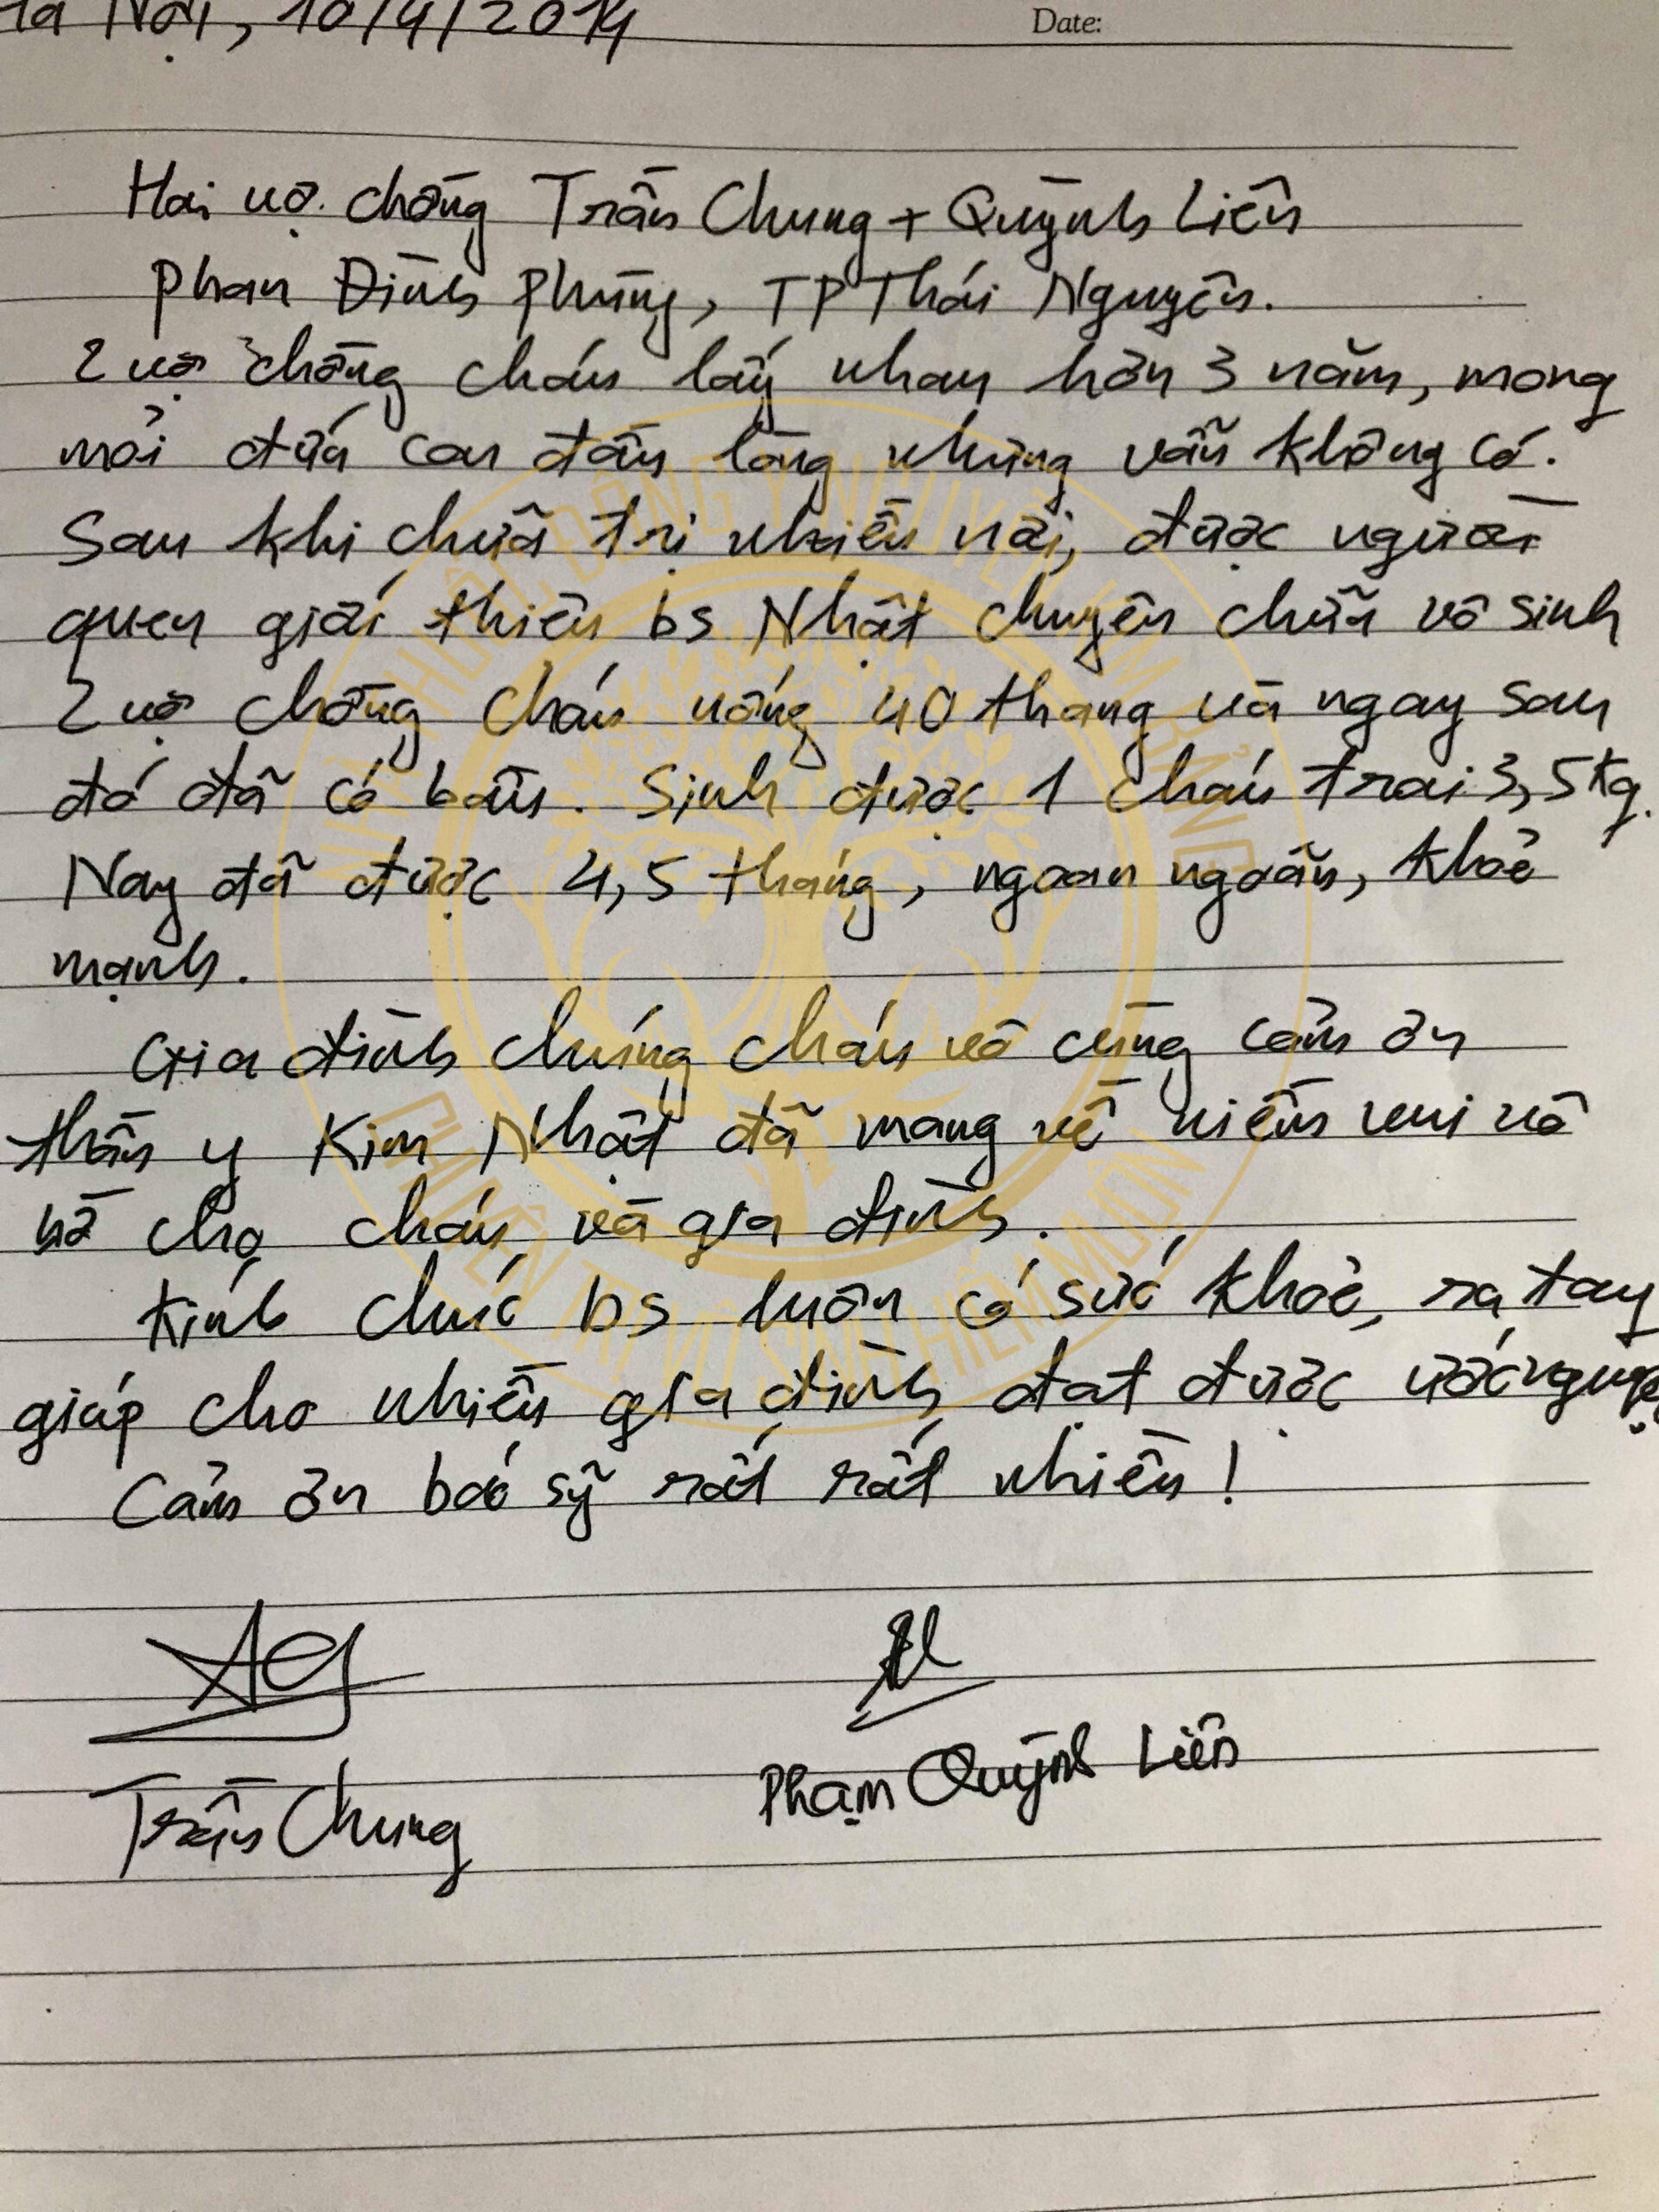 Hà Nội, 10/4/2014
Date:
Hai vợ chồng Trần Chung + Quỳnh Liên
Phan Đình Phùng, TP Thái Nguyên.
2 vợ chồng cháu lấy nhau hơn 3 năm, mong
mỏi đứa con đầu lòng nhưng vẫn không có.
Sau khi chữa trị nhiều nơi, được người
quen giới thiệu bs Nhật chuyên chữa vô sinh
2 vợ chồng cháu uống 40 thang và ngay sau
đó đã có bầu. Sinh được 1 cháu trai 3,5kg.
Nay đã được 4,5 tháng, ngoan ngoãn, khỏe
mạnh.
Gia đình chúng cháu vô cùng cảm ơn
thần y Kim Nhật đã mang về niềm vui vô
bờ cho cháu và gia đình.
Kính chúc bs luôn có sức khỏe, ra tay
giúp cho nhiều gia đình đạt được ước nguyện
Cảm ơn bác sỹ rất rất nhiều!
Trần Chung
Phạm Quỳnh Liên
CHUYÊN TRỊ VÔ SINH HIẾM MUỘN